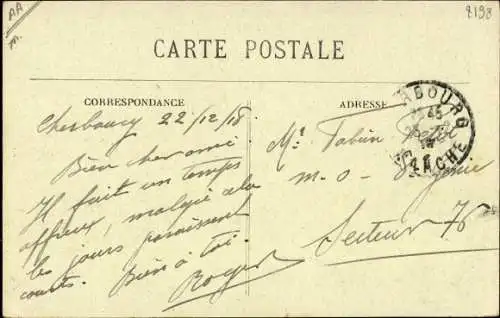 AA
m.
2198
CARTE POSTALE
CORRESPONDANCE
ADRESSE
Cherbourg 22/12/18
Bien cher ami
Il fait un temps
affreux, malgré cela
les jours paraissent
courts. Bien à toi.
Roger
Mr. Tabun
m-o-
Secteur 76
RBOURG
45
MANCHE